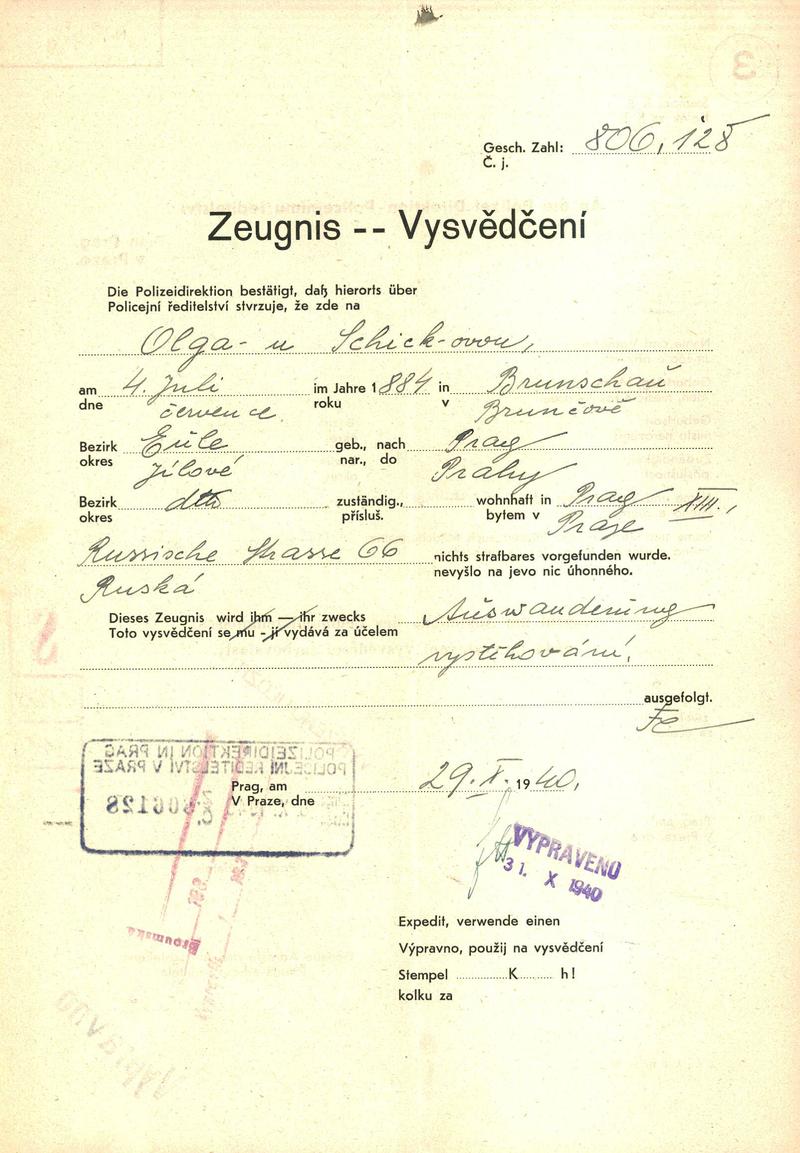 3
Gesch. Zahl: 806,128
Č. j.
Zeugnis -- Vysvědčení
Die Polizeidirektion bestätigt, daß hierorts über
Policejní ředitelství stvrzuje, že zde na
Olga- u Schick-ovou,
am 4. Juli im Jahre 1884 in Brunschau
dne července roku v Brunčově
Bezirk Eule geb., nach Prag
okres Jílové nar., do Prahy
Bezirk dtto zuständig., wohnhaft in Prag XIII.,
okres přísluš. bytem v Praze
Russische Strasse 66 nichts strafbares vorgefunden wurde.
Ruská nevyšlo na jevo nic úhonného.
Dieses Zeugnis wird ihm — ihr zwecks Auswanderung
Toto vysvědčení se mu - jí vydává za účelem
vystěhování,
ausgefolgt.
POLIZEIDIREKTION IN PRAG
POLICEJNÍ ŘEDITELSTVÍ V PRAZE
806128
Prag, am 29. X. 1940.
V Praze, dne
VYPRAVENO
31. X 1940
Broumská
Expedit, verwende einen
Výpravno, použij na vysvědčení
Stempel K h!
kolku za